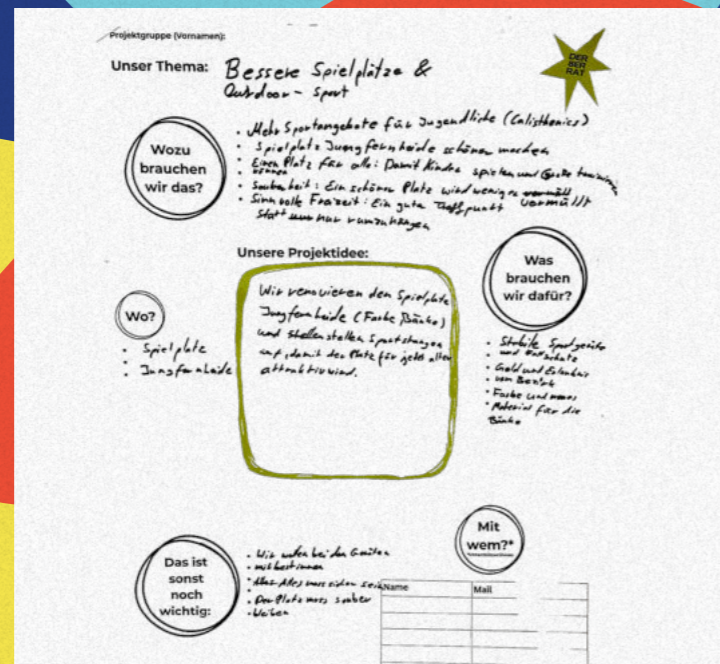 Projektgruppe (Vornamen):
DER
BER
RAT
Unser Thema: Bessere Spielplätze &
Outdoor - Sport
Wozu
brauchen
wir das?
• Mehr Sportangebote für Jugendliche (Calisthenics)
• Spielplatz Jungfernheide schöner machen
• Einen Platz für alle: Damit Kinder spielen und Große trainieren
• können
• Sauberheit: Ein schöner Platz wird weniger vermüllt
• Sinnvolle Freizeit: Ein guter Treffpunkt
statt nur rumzuhängen
Unsere Projektidee:
Wir renovieren den Spielplatz
Jungfernheide (Farbe, Bänke)
und stellen Sportstangen
auf, damit der Platz für jedes alter
attraktiv wird.
Wo?
• Spielplatz
• Jungfernheide
Was
brauchen
wir dafür?
• Stabile Sportgeräte
• Geld und
• vom Bezirk
• Farbe und
• Material für die
Bänke
Das ist
sonst
noch
wichtig:
• Wir wollen bei den Geräten
• mitbestimmen
• Alles muss sicher sein
• Der Platz muss sauber
• bleiben
Mit
wem?*
Name
Mail